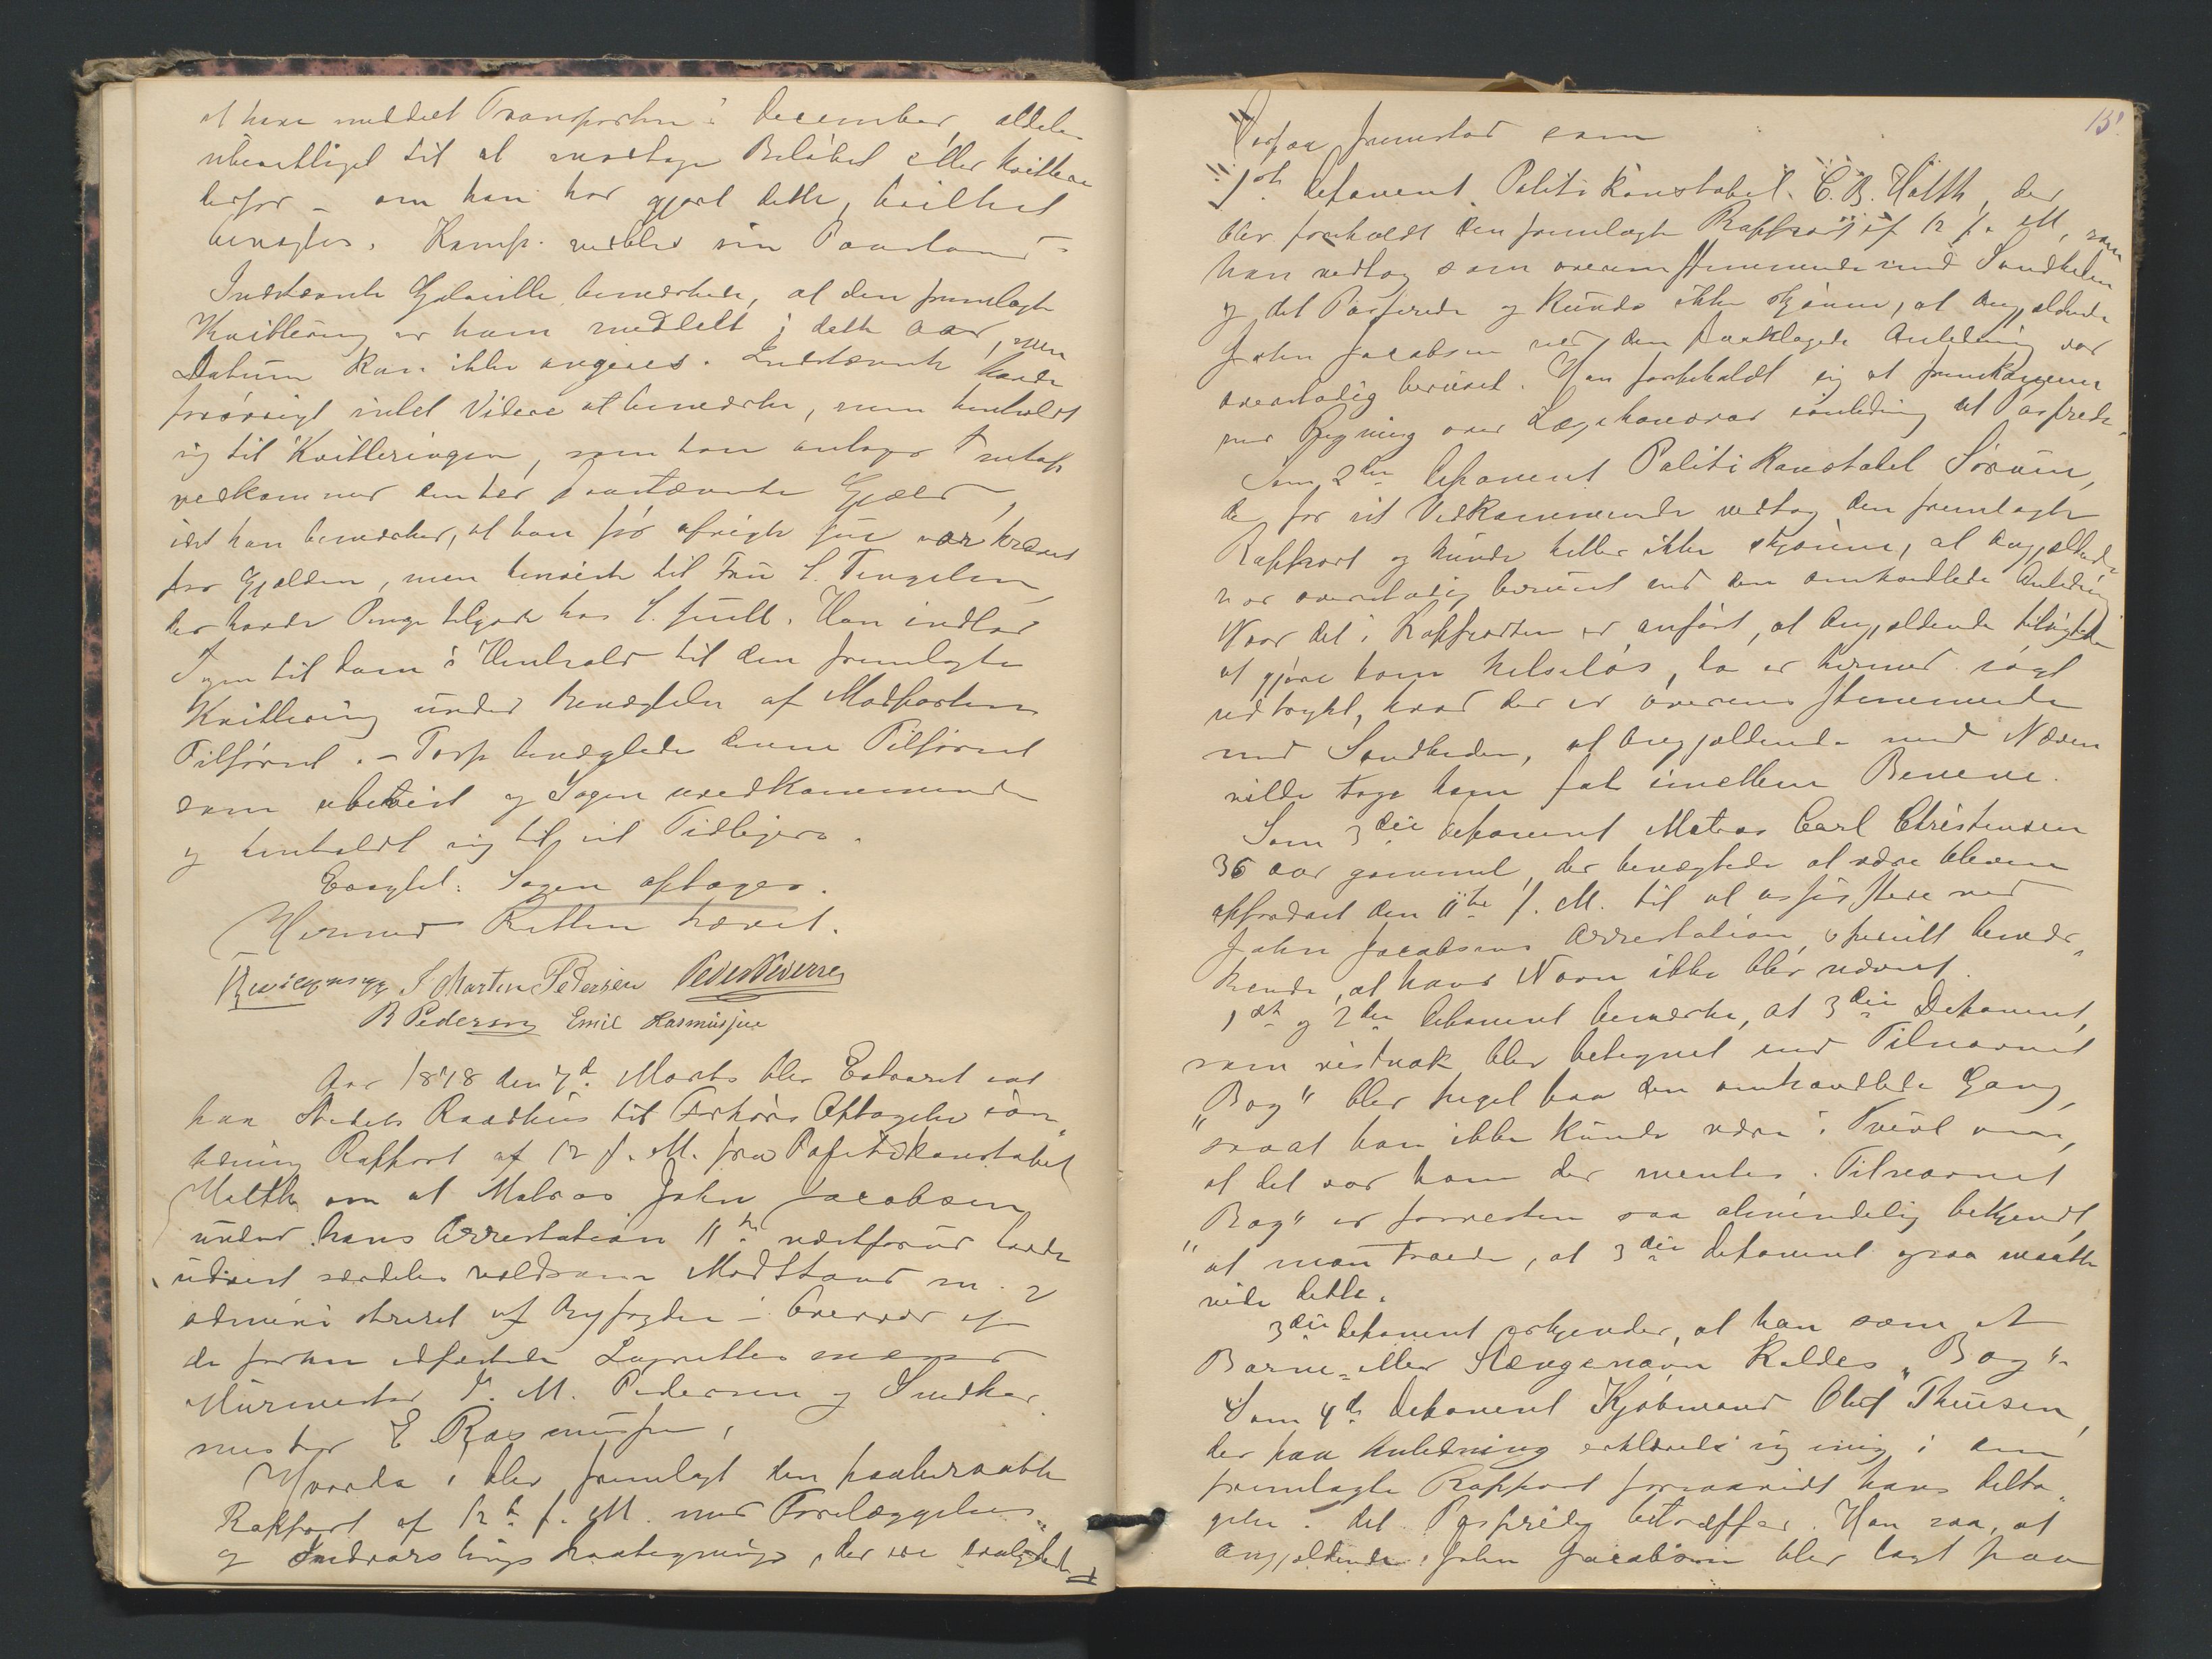 at have meddelt Transporten i December, aldeles
uberettiget til at modtage Beløbet eller kvittere
derfor – om han har gjort dette, hvilket
benægtes. Komp. vedblev sin Paastand –
Indstævnte bemærkede, at den fremlagte
Kvittering er ham meddelt i dette Aar, men
Datum kan ikke angives. Indstævnte havde
forøvrigt intet Videre at bemærke, men henholdt
sig til Kvitteringen, som han antager
vedkommer den her paastævnte Gjæld,
idet han bemærker, at han før afvigte Juul var krævet
for Gjælden, men henviste til Fru S. Tengelsen,
der havde Penge tilgode hos S. Juell. Han indlod
Sagen til Dom i Henhold til den fremlagte
Kvittering under Benægtelse af Modpartens
Tilførsel. – Torp benægtede denne Tilførsel
som ubevist og Sagen uvedkommende
og henholdt sig til sit Tidligere.
Eragtet: Sagen optages.
Hermed Retten hævet.
S Martin Petersen
B Pedersen Emil Rasmussen
Aar 1878 den 7de Marts blev Extraret sat
paa Stedets Raadhus til Forhørs Optagelse i an-
ledning Rapport af 12 f. M. fra Politikonstabel
Holth om at Matros John Jacobsen
under hans Arrestation 11te næstforud havde
udvist særdeles voldsom Modstand m. 
administreret af Byfogden i Overvær af
de forhen edfæstede Lagrettesmænd
Murmester S. M. Pedersen og Snedker
mester E Rasmussen,
Hvorda: blev fremlagt den paaberaabte
Rapport af 12te f. M. med Forelæggelses-
og Indvarslings Paategninger, der ere saalydende
15.
Derpaa fremstod som
1ste Deponent Politikonstabel C. B. Holth, der
blev foreholdt den fremlagte Rapport af 12 f. M, som
han vedtog som overensstemmende med Sandheden
og det Passerede og kunde ikke skjønne, at Angjældende
John Jacobsen ved den paaklagede Anledning var
overstadig beruset. Han forbeholdt sig at fremkomme
med Regning over Lægehonorar i anledning det Passerede.
Som 2den Deponent Politikonstabel Sørum,
der for sit Vedkommende vedtog den fremlagte
Rapport og kunde heller ikke skjønne, at Angjældende
var overstadig beruset ved den omhandlede Anledning
Naar det i Rapporten er anført, at Angjældende tilsigtede
at gjøre ham helseløs, da er hermed søgt
udtrykt, hvad der er overensstemmende
med Sandheden, at Angjældende med Næven
vilde tage ham fat imellem Benene.
Som 3die Deponent Matros Carl Christensen
36 Aar gammel, der benægtede at være bleven
opfordret den 11te f. M. til at assistere ved
John Jacobsens Arrestation, specielt bemær-
kende, at hans Navn ikke blev nævnt.
1ste og 2den Deponent bemærke, at 3die Deponent,
som vistnok blev betegnet med Tilnavnet
„Bog" blev seet paa den omhandlede Gang,
saa at han ikke kunde være i Tvivl om,
at det var ham der mentes. Tilnavnet
„Bog" er forresten saa almindelig bekjendt,
at man troede, at 3die Deponent ogsaa maatte
vide dette.
3die Deponent erkjender, at han som et
Barne- eller Slængenavn kaldes „Bog".
Som 4de Deponent Kjøbmand Oluf Thuesen,
der paa Anledning erklærede sig enig i den
fremlagte Rapport forsaavidt hans Delta-
gelse i det Passerede betræffer. Han saa, at
Angjældende John Jacobsen blev lagt paa